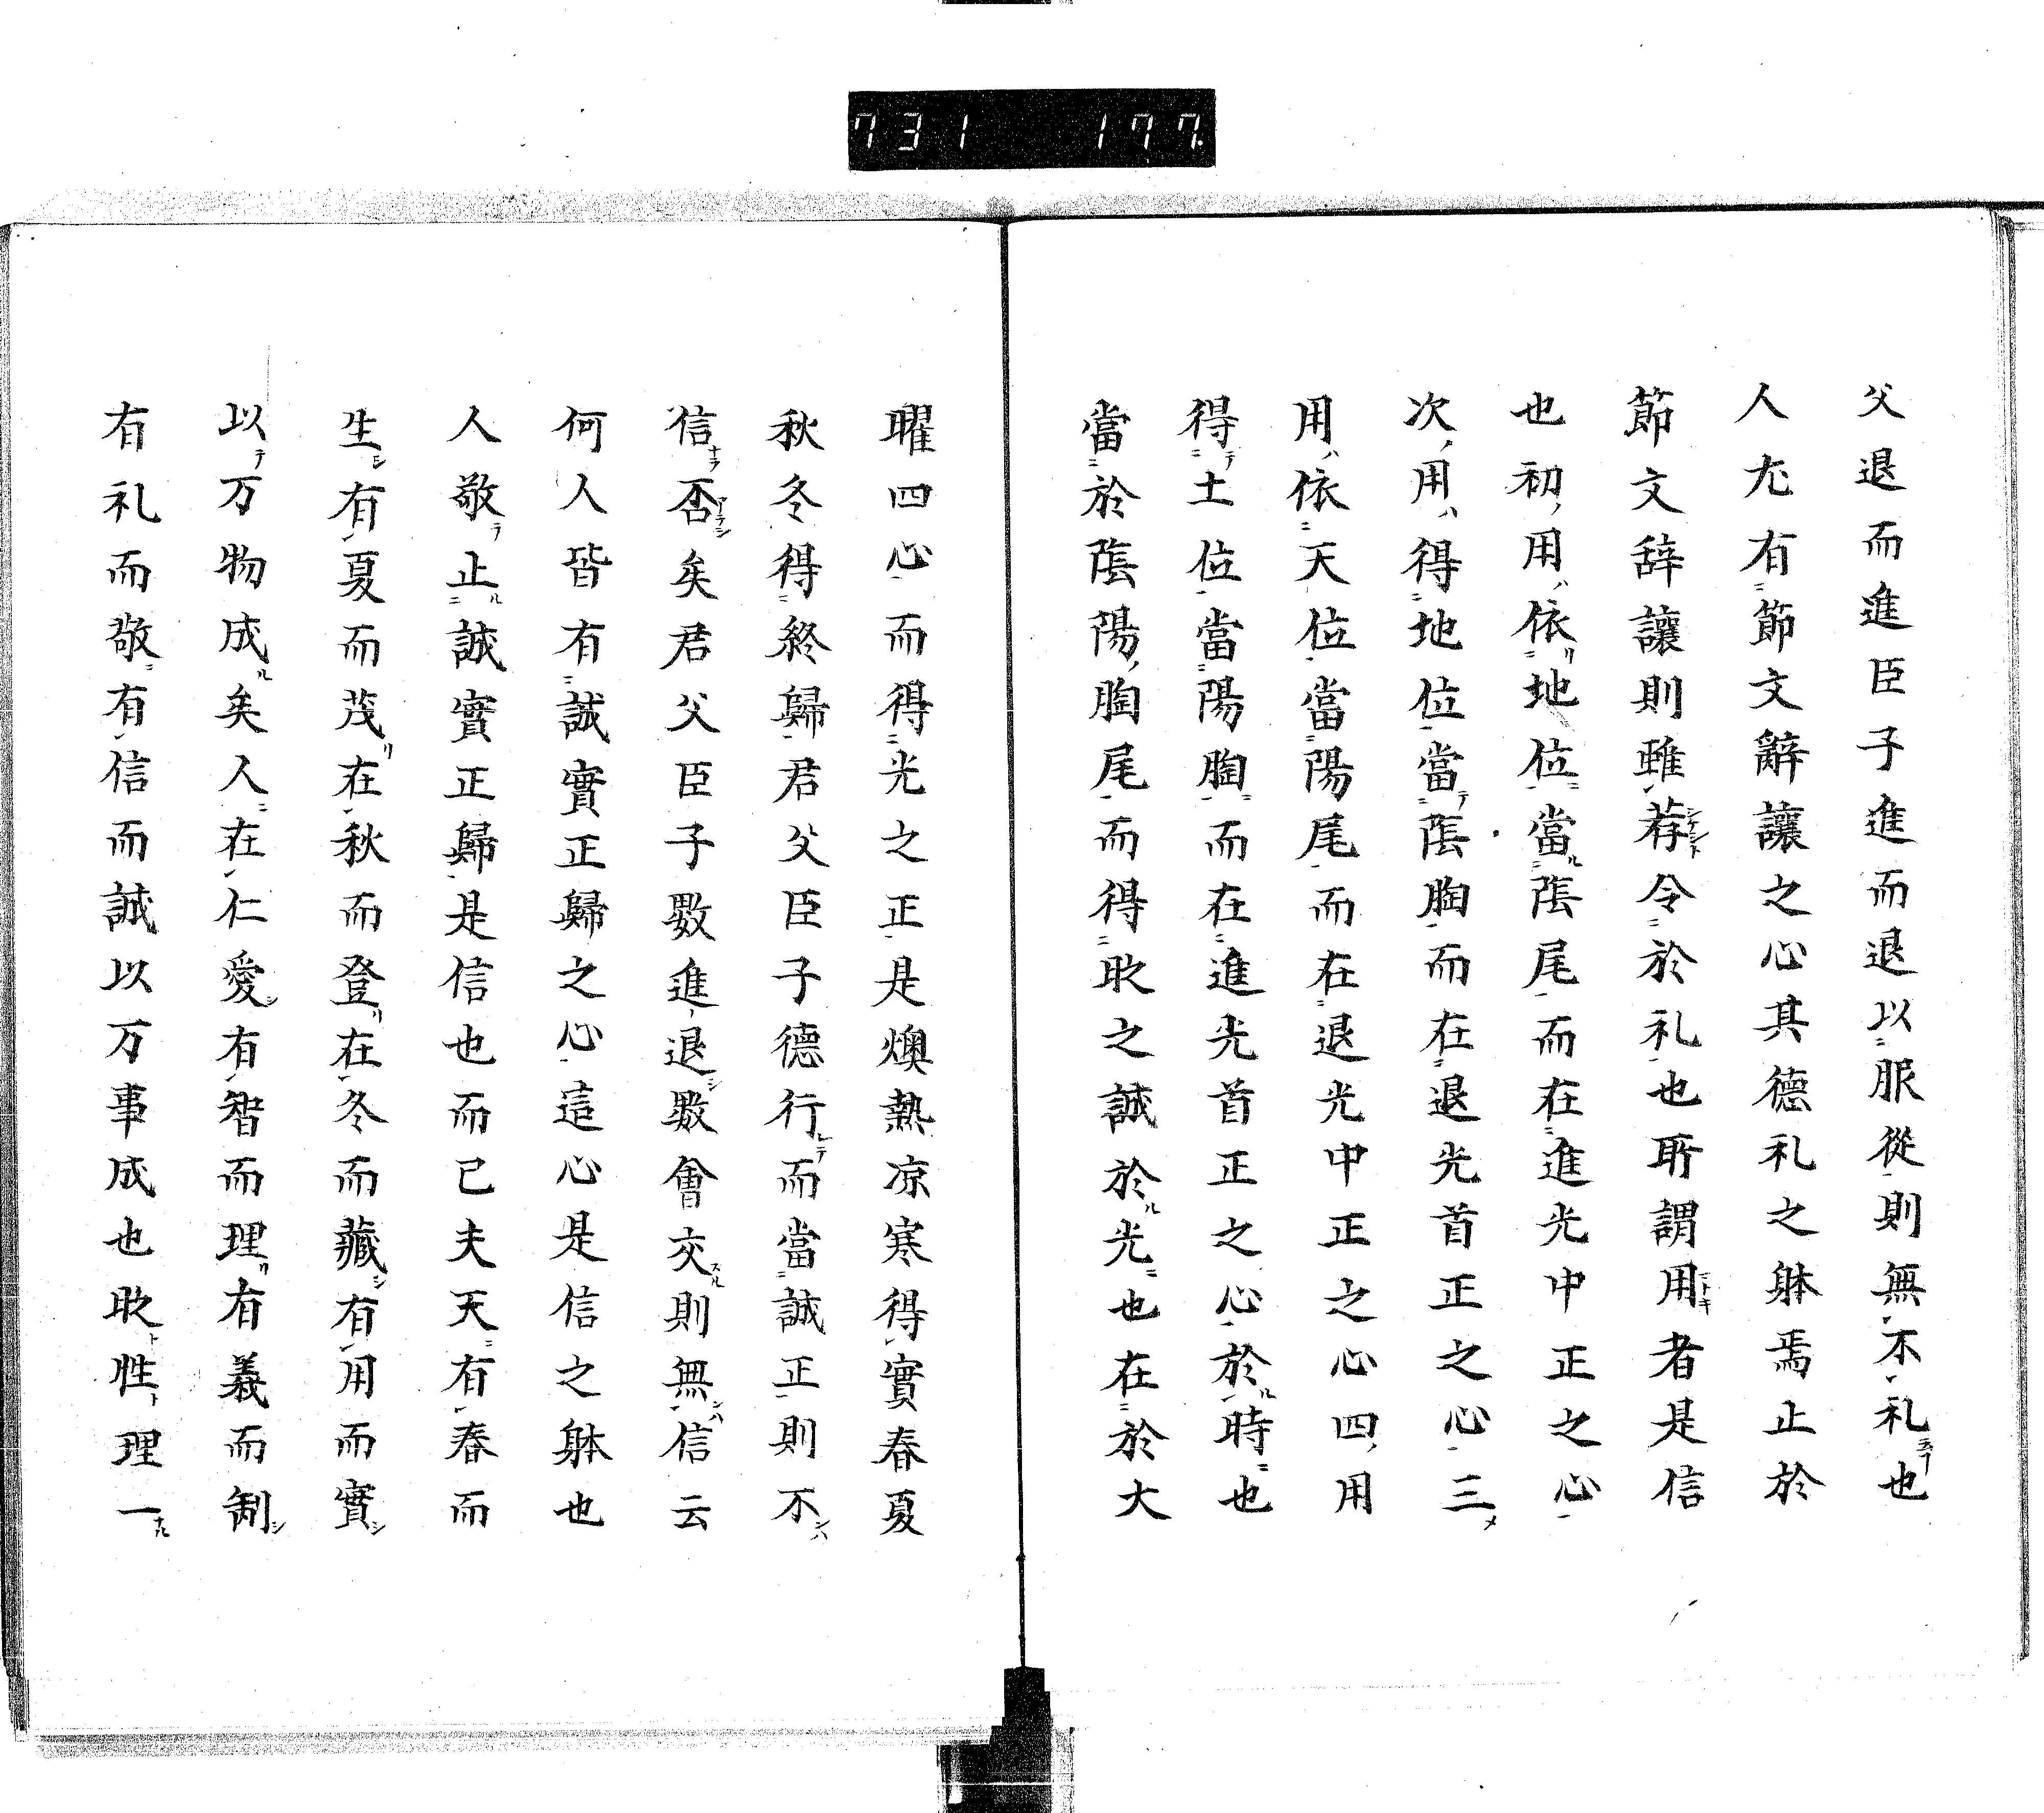 731 177.
父退而進臣子進而退以服從則無不礼也
人尤有節文辭讓之心其德礼之躰焉止於
節文辞讓則雖荐令於礼也所謂用者是信
也初用依地位當陰尾而在進光中正之心
次用得地位當陰胸而在退光首正之心三
用依天位當陽尾而在退光中正之心四用
得土位當陽胸而在進光首正之心於時也
當於陰陽胸尾而得収之誠於光也在於大
曜四心而得光之正是燠熱凉寒得實春夏
秋冬得終歸君父臣子德行而當誠正則不
信否矣君父臣子數進退數會交則無信云
何人皆有誠實正歸之心這心是信之躰也
人敬止誠實正歸是信也而已夫天有春而
生有夏而茂在秋而登在冬而藏有用而實
以万物成矣人在仁愛有智而理有義而制
有礼而敬有信而誠以万事成也収性理一